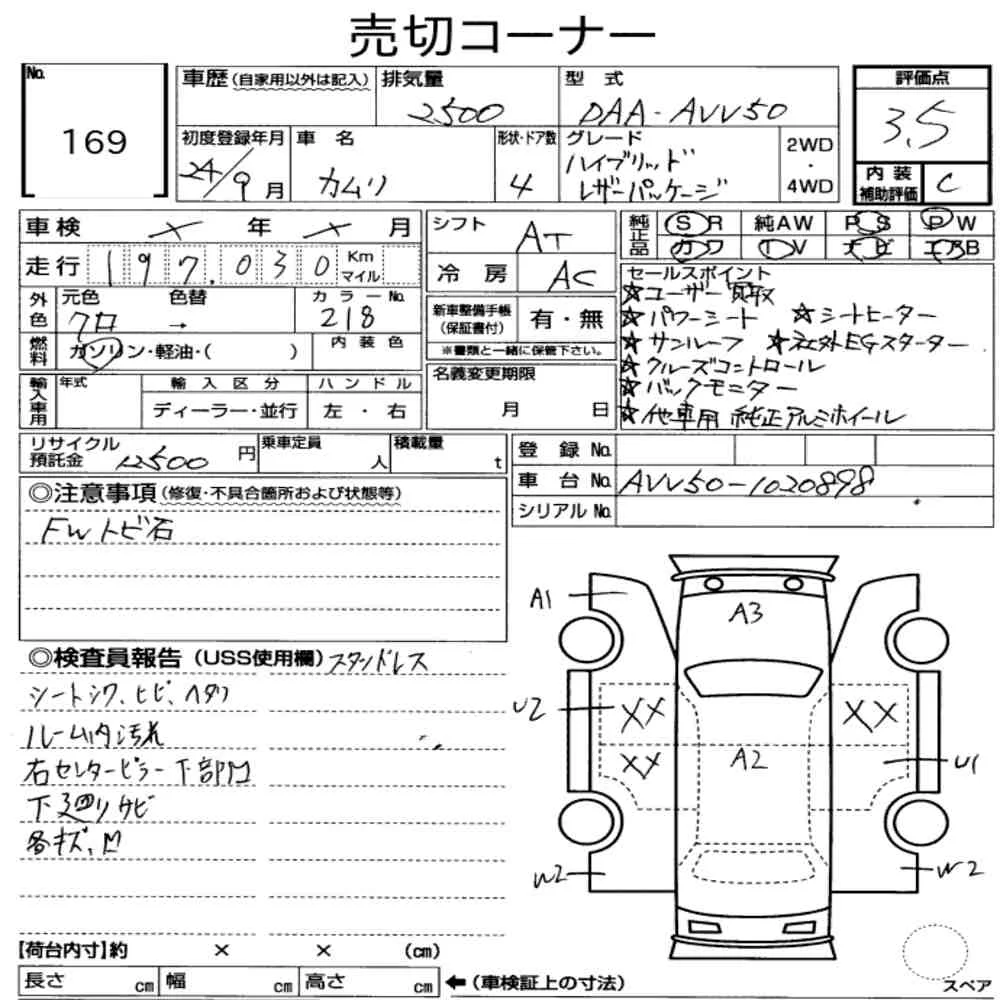 売切コーナー
No.
169
車歴(自家用以外は記入)
排気量
2500
型 式
DAA-AVV50
評価点
3.5
内装補助評価
C
初度登録年月
24/9月
車 名
カムリ
形状・ドア数
4
グレード
ハイブリッド
レザーパッケージ
2WD
・
4WD
車検 × 年 × 月
走行 197,030 Km マイル
シフト
AT
冷 房
AC
純正品
SR 純AW PS PW
カワ TV ナビ エアB
外色
元色 色替
クロ →
カラーNo.
218
燃料
ガソリン・軽油・( )
内 装 色
新車整備手帳(保証書付)
有・無
※書類と一緒に保管下さい。
セールスポイント
☆ユーザー買取
☆パワーシート ☆シートヒーター
☆サンルーフ ☆社外EGスターター
☆クルーズコントロール
☆バックモニター
☆他車用 純正アルミホイール
輸入車用
年式
輸入区分
ディーラー・並行
ハンドル
左・右
名義変更期限
月 日
リサイクル預託金
12500円
乗車定員
人
積載量
t
登 録 No.
車 台 No.
AVV50-1020898
シリアル No.
◎注意事項(修復・不具合箇所および状態等)
FWトビ石
◎検査員報告(USS使用欄)スタンドレス
シートシワ、ヒビ、ヘタリ
ルーム内汚れ
右センターピラー下部M
下廻りサビ
各キズ、M
A1
A3
U2
XX
XX
XX
A2
U1
W2
W2
スペア
【荷台内寸】約 × × (cm)
長さ cm 幅 cm 高さ cm
←(車検証上の寸法)